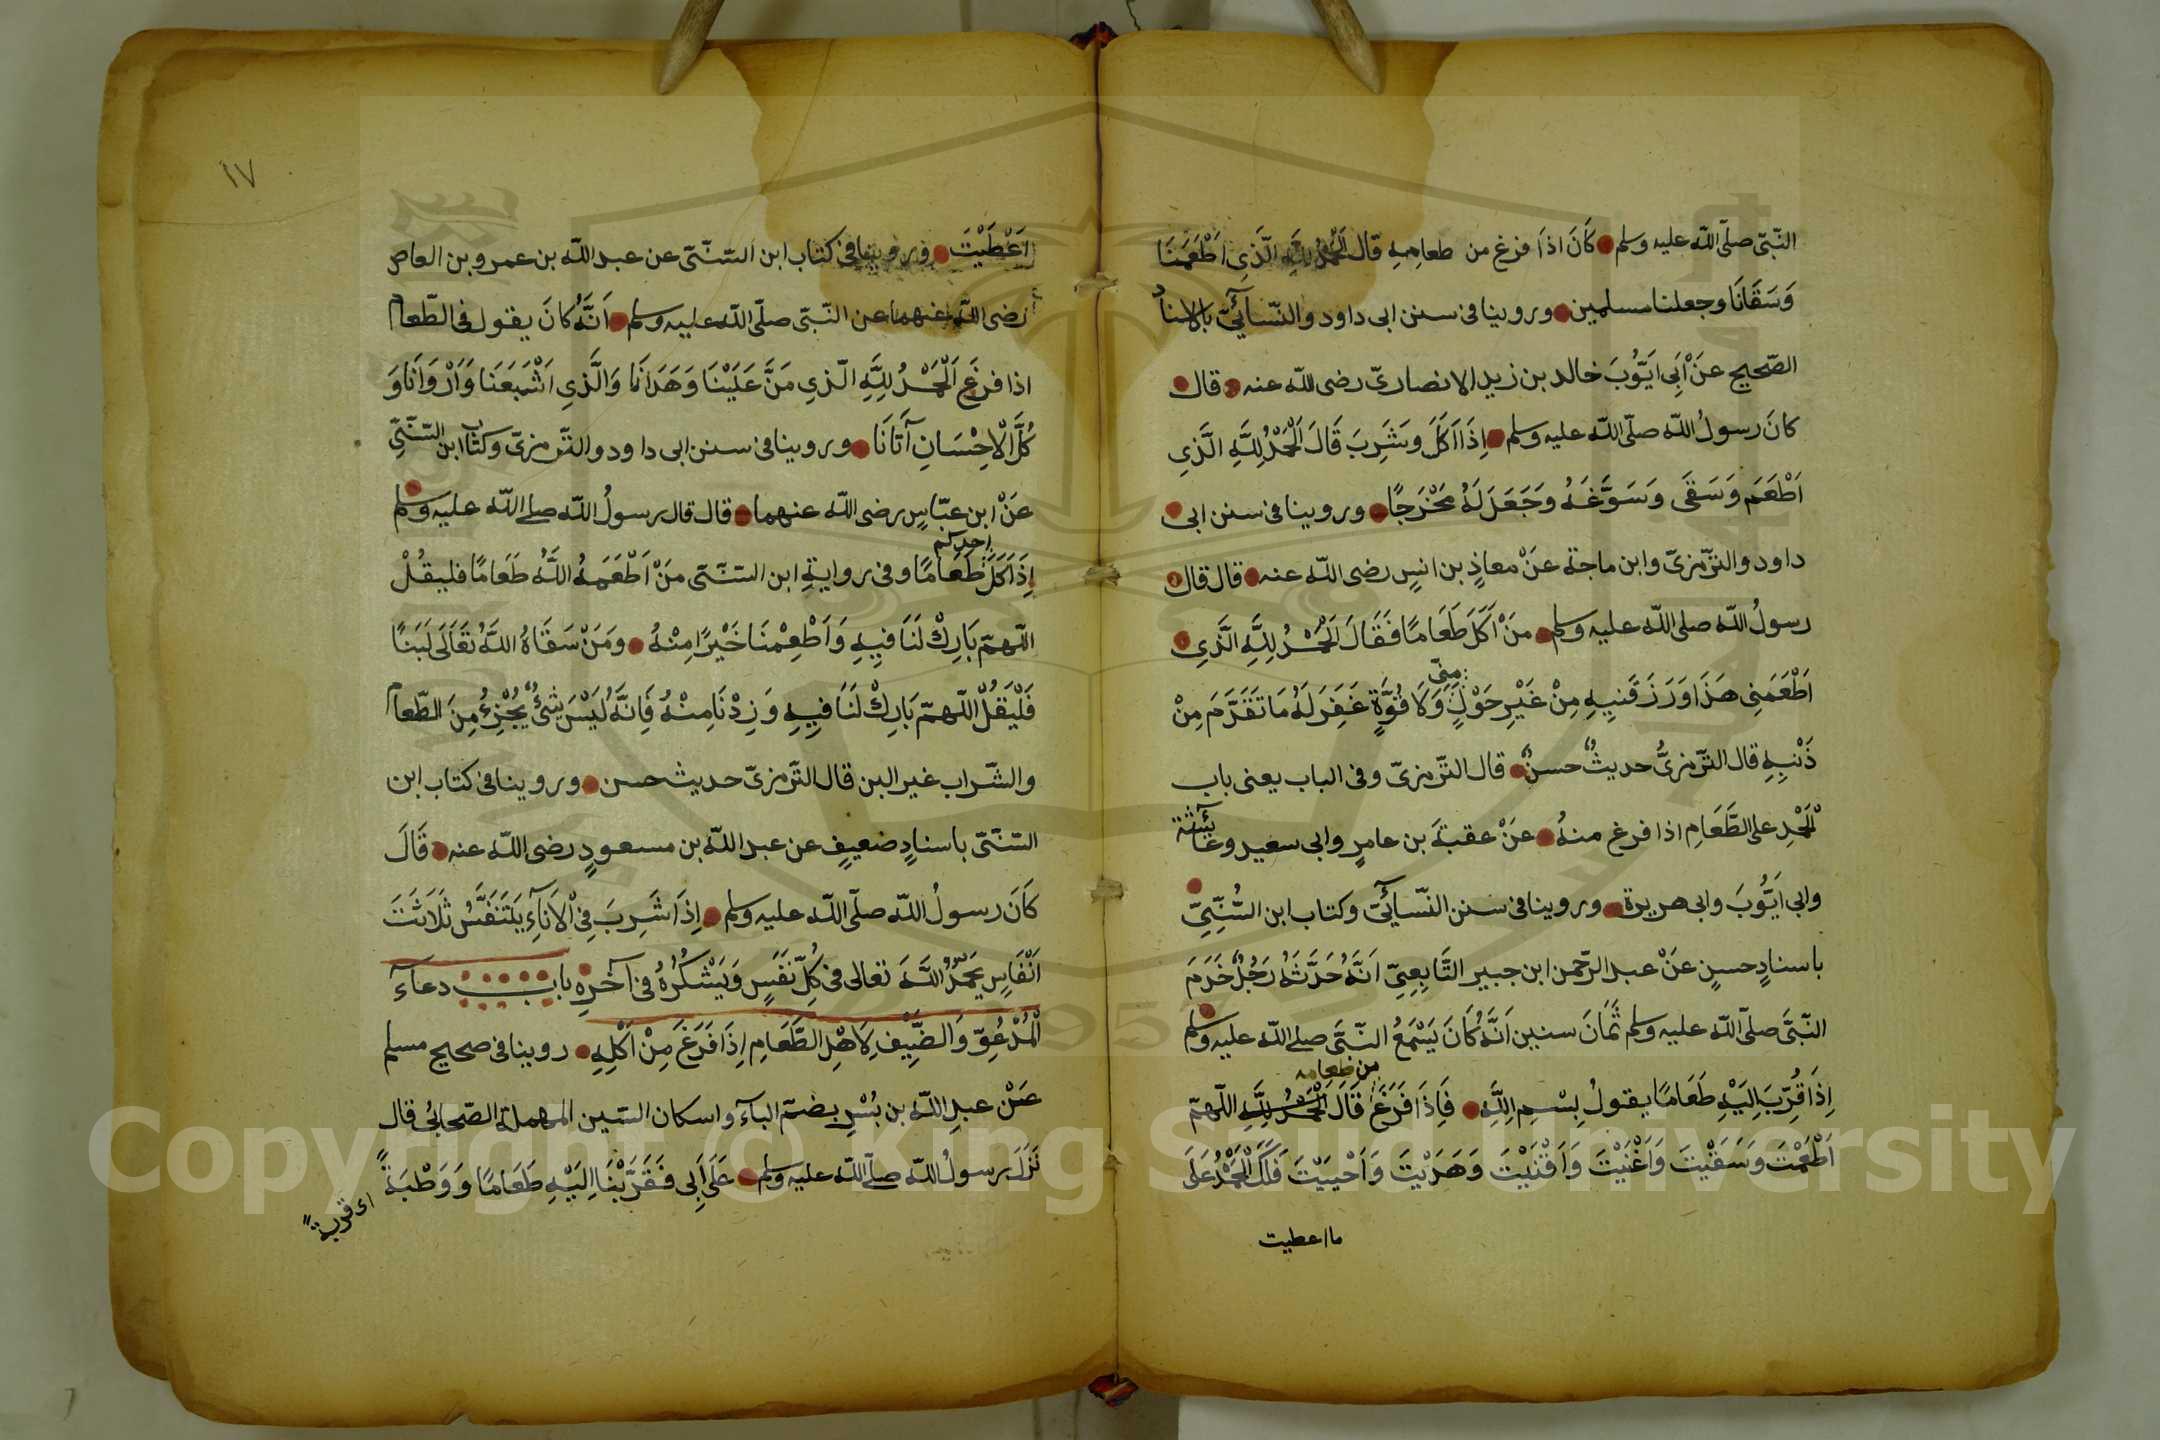 النّبيّ صلّى اللّه عليه وسلم كَانَ اذَا فرغ من طعامِهِ قال اَلْحَمْدُ لِلَّهِ الَّذِى اَطْعَمَنَا
وَسَقَانَا وجعلنا مسلمين وروينا فى سنن ابى داود والنّسآئىّ بالاسناد
الصّحيح عَنْ اَبِى ايَّوُبَ خالد بن زيد الانصارىّ رضى اللّه عنه قال
كانَ رسولُ اللّه صلّى اللّه عليه وسلم اِذَا اَكَلَ وشَرِبَ قَالَ اَلْحَمْدُ لِلَّهِ الَّذِى
اَطْعَمَ وَسَقَى وَسَوَّغَهُ وَجَعَلَ لَهُ مَخْرَجًا وروينا فى سنن ابى
داود والترّمزىّ وابن ماجة عَنْ معاذٍ بن انسٍ رضى اللّه عنه قال قال
رسولُ اللّه صلى اللّه عليه وسلم مَنْ اَكَلَ طَعَامًا فَقَالَ اَلْحَمْدُ لِلَّهِ الَّذِى
اَطْعَمَنِى هَذَا وَرَزَقَنِيهِ مِنْ غَيْرِ حَوْلٍ مِنِّى وَلَا قُوَّةٍ غَفِرَ لَهُ مَا تَقَدَّمَ مِنْ
ذَنْبِهِ قال الترّمزىُّ حديثٌ حسنٌ قال الترّمزىّ وفى الباب يعنى باب
الْحَمْدِ على الطَّعَامِ اذا فرغ منهُ عَنْ عقبةَ بن عامرٍ وابى سعيد وعآئشة
وابى ايَّوُبَ وابى هريرة وروينا فى سنن النّسآئىّ وكتاب ابن السُّنِّىّ
باسنادٍ حسنٍ عَنْ عبد الرّحمن ابن جبير التَّابِعِىّ اَنَّهُ حَدَّثَهُ رَجُلٌ خَدَمَ
النّبىَّ صلّى اللّه عليه وسلم ثَمَانَ سنين اَنَّهُ كَانَ يَسْمَعُ النّبَّى صلى اللّه عليه وسلم
اِذَا قُرِّبَ اِلَيْهِ طَعَامًا يقولُ بِسْمِ اللَّهِ فَاِذَا فَرَغَ من طعامه قَالَ اَلْحَمْدُ لِلَّهِ اللّهمّ
اَطْعَمْتَ وَسَقَيْتَ وَاَغْنَيْتَ وَاَقْنَيْتَ وَهَدَيْتَ وَاَحْيَيْتَ فَلَكَ الْحَمْدُ عَلَى
ما اعطيت
١٧
اَعْطَيْتَ وروينا فى كتاب ابن السّنّىّ عن عبد اللّه بن عمرو بن العاص
رضى اللّه عنهما عن النّبىّ صلّى اللّه عليه وسلم اَنَّهُ كانَ يقول فى الطّعام
اذا فرغ اَلْحَمْدُ لِلَّهِ الّذِى مَنَّ عَلَيْنَا وَهَدَانَا وَالَّذِى اَشْبَعَنَا وَاَرْوَانَا وَ
كُلَّ الْاِحْسَانِ آتَانَا وروينا فى سنن ابى داود والترّمزىّ وكتاب ابن السّنّىّ
عَنْ ابن عبّاسٍ رضى اللّه عنهما قال قال رسولُ اللّه صلى اللّه عليه وسلم
اِذَا اَكَلَ احدكم طَعَامًا وفى روايةِ ابن السّنّىّ مَنْ اَطْعَمَهُ اللَّهُ طَعَامًا فليقُلْ
اللّهمّ بَارِكْ لَنَا فِيهِ وَاَطْعِمْنَا خَيْرًا مِنْهُ وَمَنْ سَقَاهُ اللَّهُ تَعَالَى لَبَنًا
فَلْيَقُلْ اللّهمّ بَارِكْ لَنَا فِيهِ وَزِدْنَا مِنْهُ فَاِنَّهُ لَيْسَ شئٌ يُجْزِئُ مِنَ الطّعام
والشّراب غير البن قال الترّمزىّ حديث حسن وروينا فى كتاب ابن
السّنّىّ باسنادٍ ضعيفٍ عن عبد اللّه بن مسعودٍ رضى اللّه عنه قَالَ
كَانَ رسولُ اللّه صلّى اللّه عليه وسلم اِذَا شَرِبَ فِى الْاَنآءِ يَتَنَفَّسُ ثَلَاثَتَ
اَنْفَاسٍ يَحْمَدُ اللَّهَ تعالى فى كُلِّ نَفَسٍ وَيَشْكُرُهُ فى آخرِهِ باب دعآء
الْمُدْعُوِّ وَالضَّيْفِ لِاَهْلِ الطَّعَامِ اِذَا فَرَغَ مِنْ اَكْلِهِ روينا فى صحيح مسلم
عَنْ عبدِ اللّه بن بُسْرٍ بضمّ البآء واسكان السّين المهملة الصّحابىُ قال
نَزَلَ رسولُ اللّه صلّى اللّه عليه وسلم عَلَى اَبِى فَقَرَّبْنَا اِلَيْهِ طَعَامًا وَوَطْبَةً
اى قربةً
Copyright © King Saud University